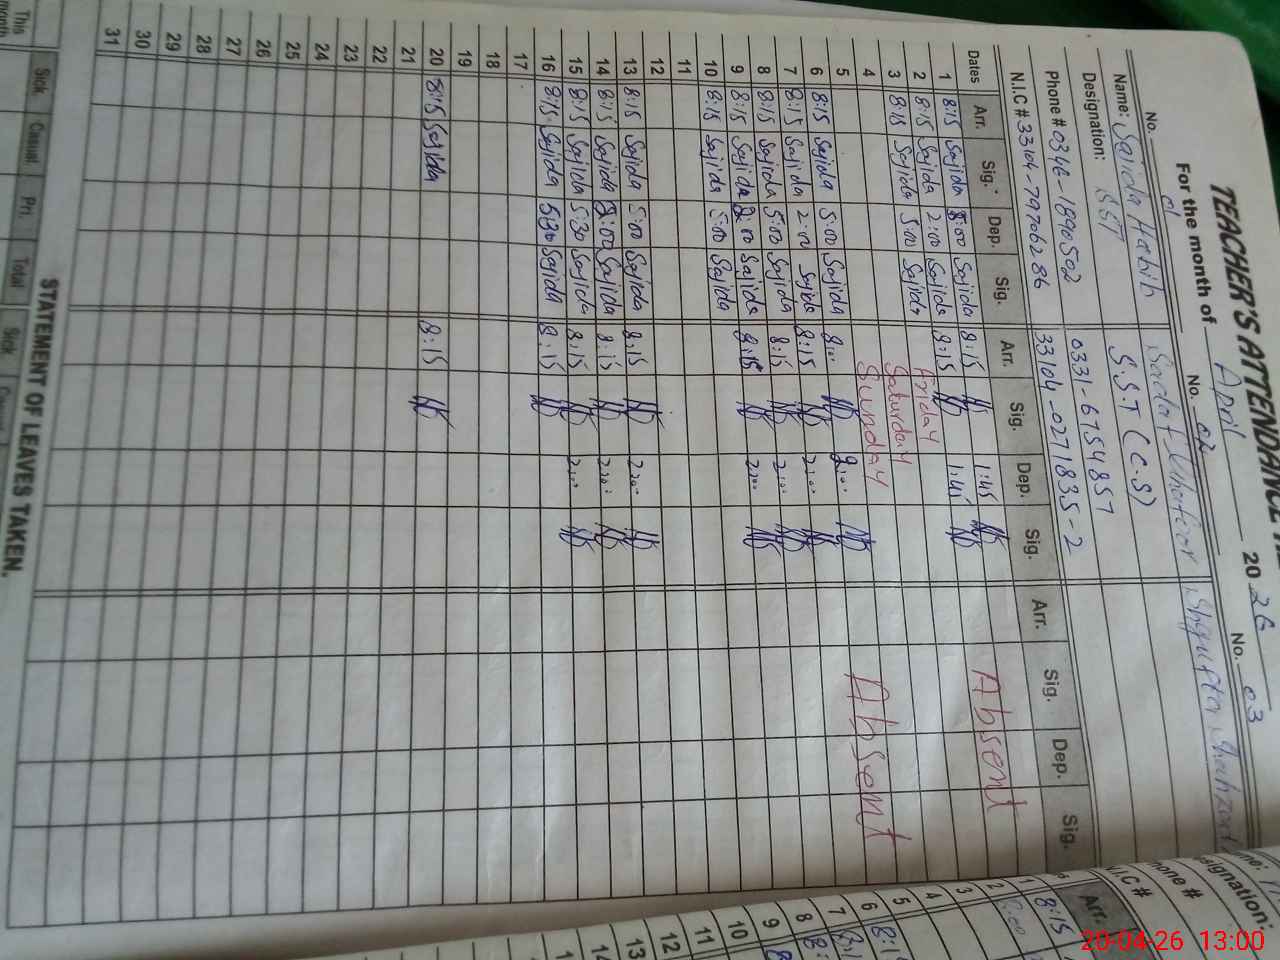 TEACHER'S ATTENDANCE
For the month of April 2026
No. 01 No. 02 No. 03
Name: Sajida Habib Sadaf
Designation: SST S.S.T (C.S)
Phone # 0346-1890502 0331-6754857
N.I.C # 33104-7970628 6 33104-0271835-2
Dates Arr. Sig. Dep. Sig. Arr. Sig. Dep. Sig. Arr. Sig. Dep. Sig.
1 8:15 Sajida 5:00 Sajida 8:15 1:45 Absent
2 8:15 Sajida 2:00 Sajida 8:15 1:45
3 8:15 Sajida 5:00 Sajida Friday
4 Saturday
5 Sunday Absent
6 8:15 Sajida 5:00 Sajida 8:00 2:00
7 8:15 Sajida 2:00 Sajida 8:15 2:00
8 8:15 Sajida 5:00 Sajida 8:15 2:00
9 8:15 Sajida 2:00 Sajida 8:15 2:00
10 8:15 Sajida 5:00 Sajida
11
12
13 8:15 Sajida 5:00 Sajida 8:15 2:00
14 8:15 Sajida 5:00 Sajida 8:15 2:00
15 8:15 Sajida 5:30 Sajida 8:15 2:00
16 8:15 Sajida 5:30 Sajida 8:15
17
18
19
20 8:15 Sajida 8:15
21
22
23
24
25
26
27
28
29
30
31
STATEMENT OF LEAVES TAKEN.
This month
Sick. Casual. Pri. Total Sick
Name:
Designation:
Phone #
N.I.C #
Arr.
1 8:15
2
3
4
5
6
7
8
9
10
11
12
13
14
20-04-26 13:00